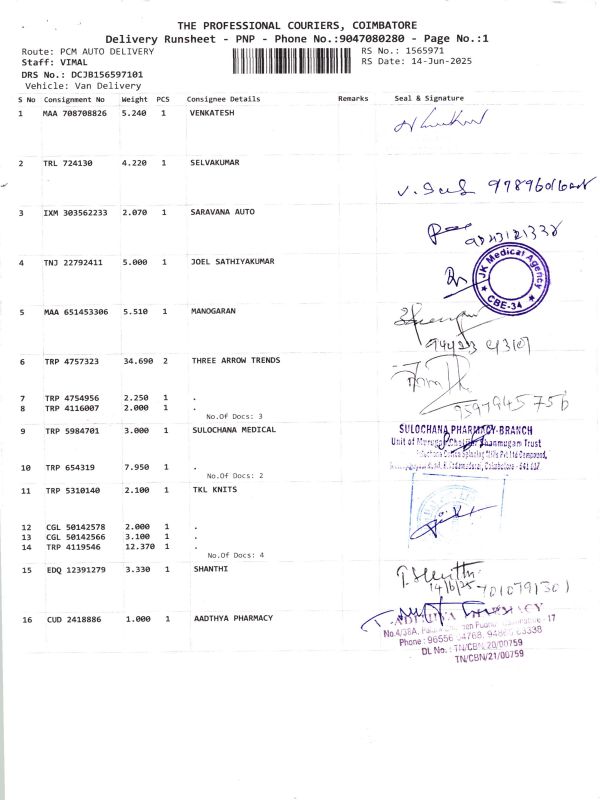 THE PROFESSIONAL COURIERS, COIMBATORE
Delivery Runsheet - PNP - Phone No.:9047080280 - Page No.:1
Route: PCM AUTO DELIVERY
RS No.: 1565971
Staff: VIMAL
RS Date: 14-Jun-2025
DRS No.: DCJB156597101
Vehicle: Van Delivery
S No Consignment No Weight PCS Consignee Details Remarks Seal & Signature
1 MAA 708708826 5.240 1 VENKATESH
2 TRL 724130 4.220 1 SELVAKUMAR
3 IXM 303562233 2.070 1 SARAVANA AUTO
4 TNJ 22792411 5.000 1 JOEL SATHIYAKUMAR
JK Medical Agency
CBE-34
5 MAA 651453306 5.510 1 MANOGARAN
6 TRP 4757323 34.690 2 THREE ARROW TRENDS
7 TRP 4754956 2.250 1 .
8 TRP 4116007 2.000 1 .
9597945756
No.Of Docs: 3
9 TRP 5984701 3.000 1 SULOCHANA MEDICAL
SULOCHANA PHARMACY-BRANCH
Unit of Trust
10 TRP 654319 7.950 1 .
No.Of Docs: 2
11 TRP 5310140 2.100 1 TKL KNITS
12 CGL 50142578 2.000 1 .
13 CGL 50142566 3.100 1 .
14 TRP 4119546 12.370 1 .
No.Of Docs: 4
15 EDQ 12391279 3.330 1 SHANTHI
14/6/25
16 CUD 2418886 1.000 1 AADTHYA PHARMACY
No.4/38A,
Phone: 96556 04768,
DL No.: TN/CBN/20/00759
TN/CBN/21/00759